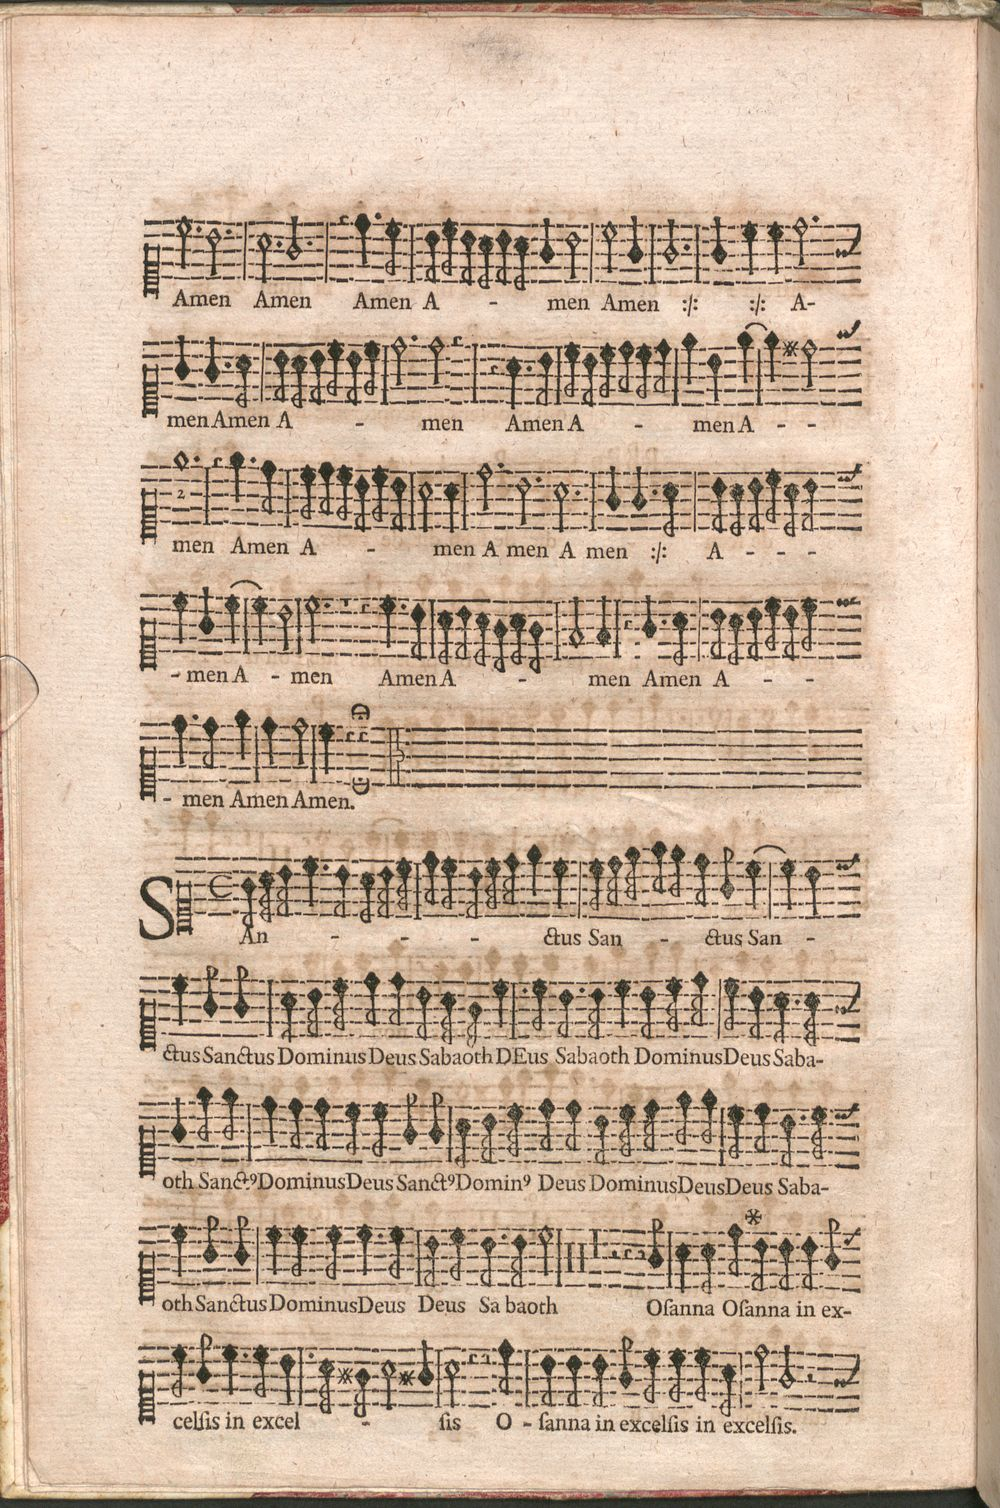 Amen Amen Amen A - men Amen :/: :/: A-
men Amen A - men Amen A - men A - -
2
men Amen A - men A men A men :/: A - - -
- men A - men Amen A - men Amen A - -
- men Amen Amen.
SAn - - - ctus San - ctus San -
ctus Sanctus Dominus Deus Sabaoth DEus Sabaoth Dominus Deus Saba-
oth Sanctꝰ Dominus Deus Sanctꝰ Dominꝰ Deus Dominus Deus Deus Saba-
oth Sanctus Dominus Deus Deus Sa baoth Oſanna Oſanna in ex-
celſis in excel - ſis O - ſanna in excelſis in excelſis.